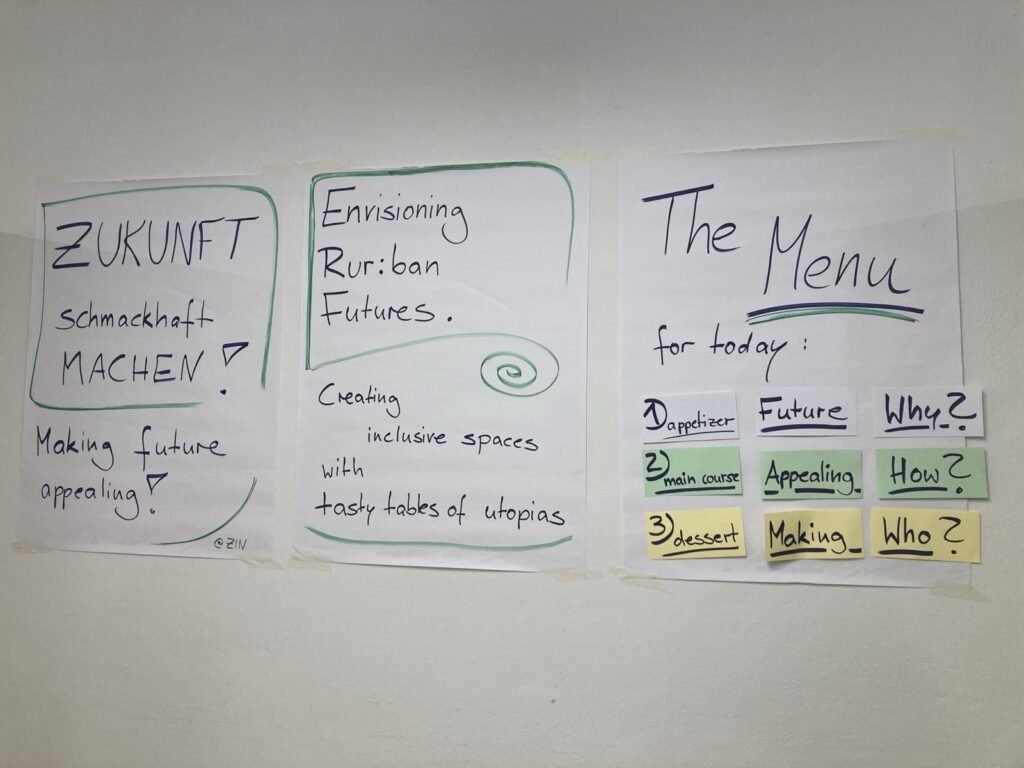 ZUKUNFT
schmackhaft
MACHEN!
Making future
appealing!
@ZIN
Envisioning
Rur:ban
Futures.
Creating
inclusive spaces
with
tasty tables of utopias
The
Menu
for today:
1) appetizer Future Why?
2) main course Appealing How?
3) dessert Making Who?